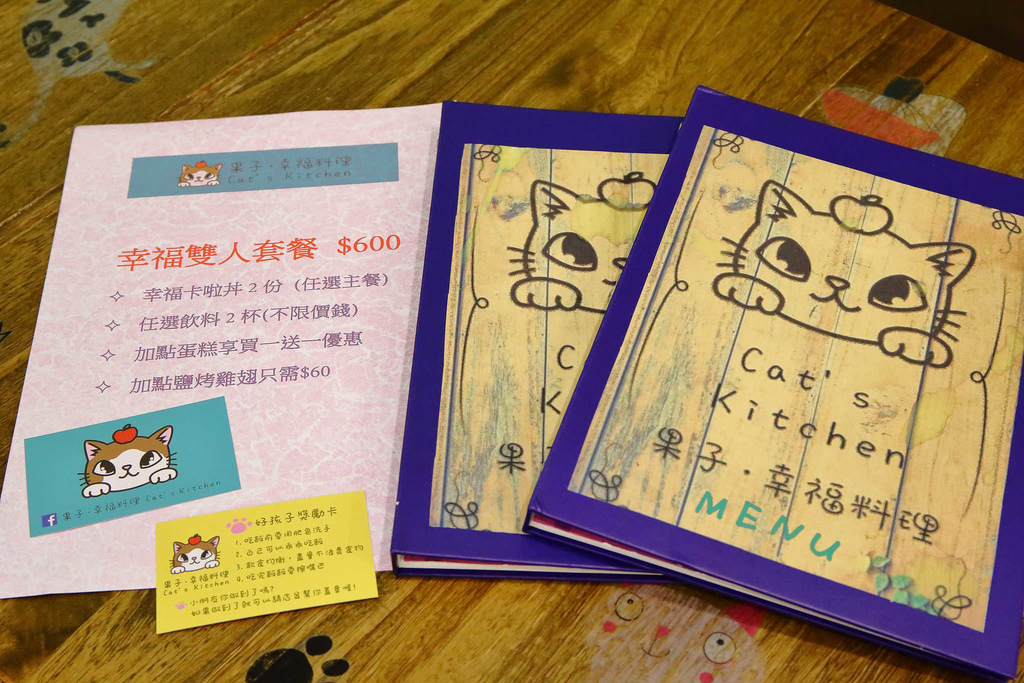 果子·幸福料理
Cat's Kitchen
幸福雙人套餐 $600
✧ 幸福卡啦丼2份 (任選主餐)
✧ 任選飲料2杯(不限價錢)
✧ 加點蛋糕享買一送一優惠
✧ 加點鹽烤雞翅只需$60
果子·幸福料理 Cat's Kitchen
好孩子獎勵卡
1. 吃飯前要用肥皂洗手
2. 自己可以乖乖吃飯
3. 飲食均衡，盡量不浪費食物
4. 吃完飯飯要擦嘴巴
果子·幸福料理
Cat's Kitchen
小朋友你做到了嗎?
如果做到了就可以請店員幫你蓋章唷!
C
K
果
Cat's
Kitchen
果子·幸福料理
MENU